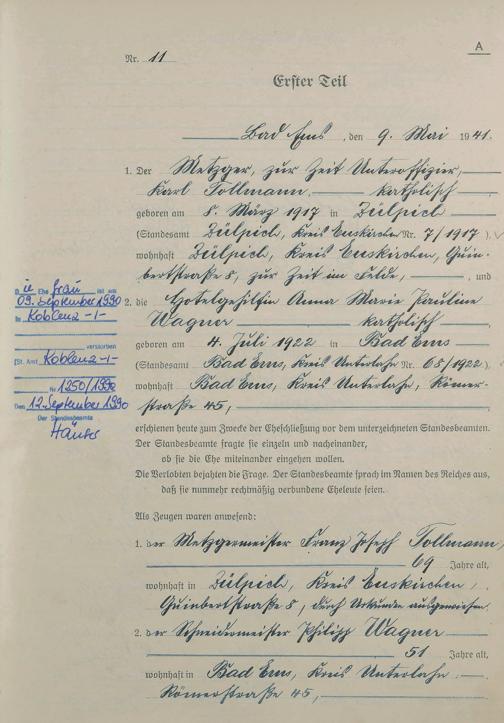 A
Nr. 11
Erster Teil
Bad Ems, den 9. Mai 1941.
1. Der Metzger, zur Zeit Unteroffizier,
Karl Tollmann, katholisch
geboren am 8. März 1917 in Zülpich
(Standesamt Zülpich, Kreis Euskirchen Nr. 7/1917)
wohnhaft Zülpich, Kreis Euskirchen, Guin-
bertstraße 8, zur Zeit im Felde, und
2. die Hotelgehilfin Anna Marie Pauline
Wagner katholisch
geboren am 4. Juli 1922 in Bad Ems
(Standesamt Bad Ems, Kreis Unterlahn Nr. 65/1922)
wohnhaft Bad Ems, Kreis Unterlahn, Römer-
straße 45,
erschienen heute zum Zwecke der Eheschließung vor dem unterzeichneten Standesbeamten.
Der Standesbeamte fragte sie einzeln und nacheinander,
ob sie die Ehe miteinander eingehen wollen.
Die Verlobten bejahten die Frage. Der Standesbeamte sprach im Namen des Reiches aus,
daß sie nunmehr rechtmäßig verbundene Eheleute seien.
Als Zeugen waren anwesend:
1. der Metzgermeister Franz Joseph Tollmann,
69 Jahre alt,
wohnhaft in Zülpich, Kreis Euskirchen,
Guinbertstraße 8, durch Urkunden ausgewiesen,
2. der Schneidermeister Philipp Wagner
51 Jahre alt,
wohnhaft in Bad Ems, Kreis Unterlahn
Römerstraße 45,
Ehefrau ist am
09. September 1990
in Koblenz -I-
verstorben
(St. Amt Koblenz -I-
Nr. 1250/1990
Den 12. September 1990
Der Standesbeamte